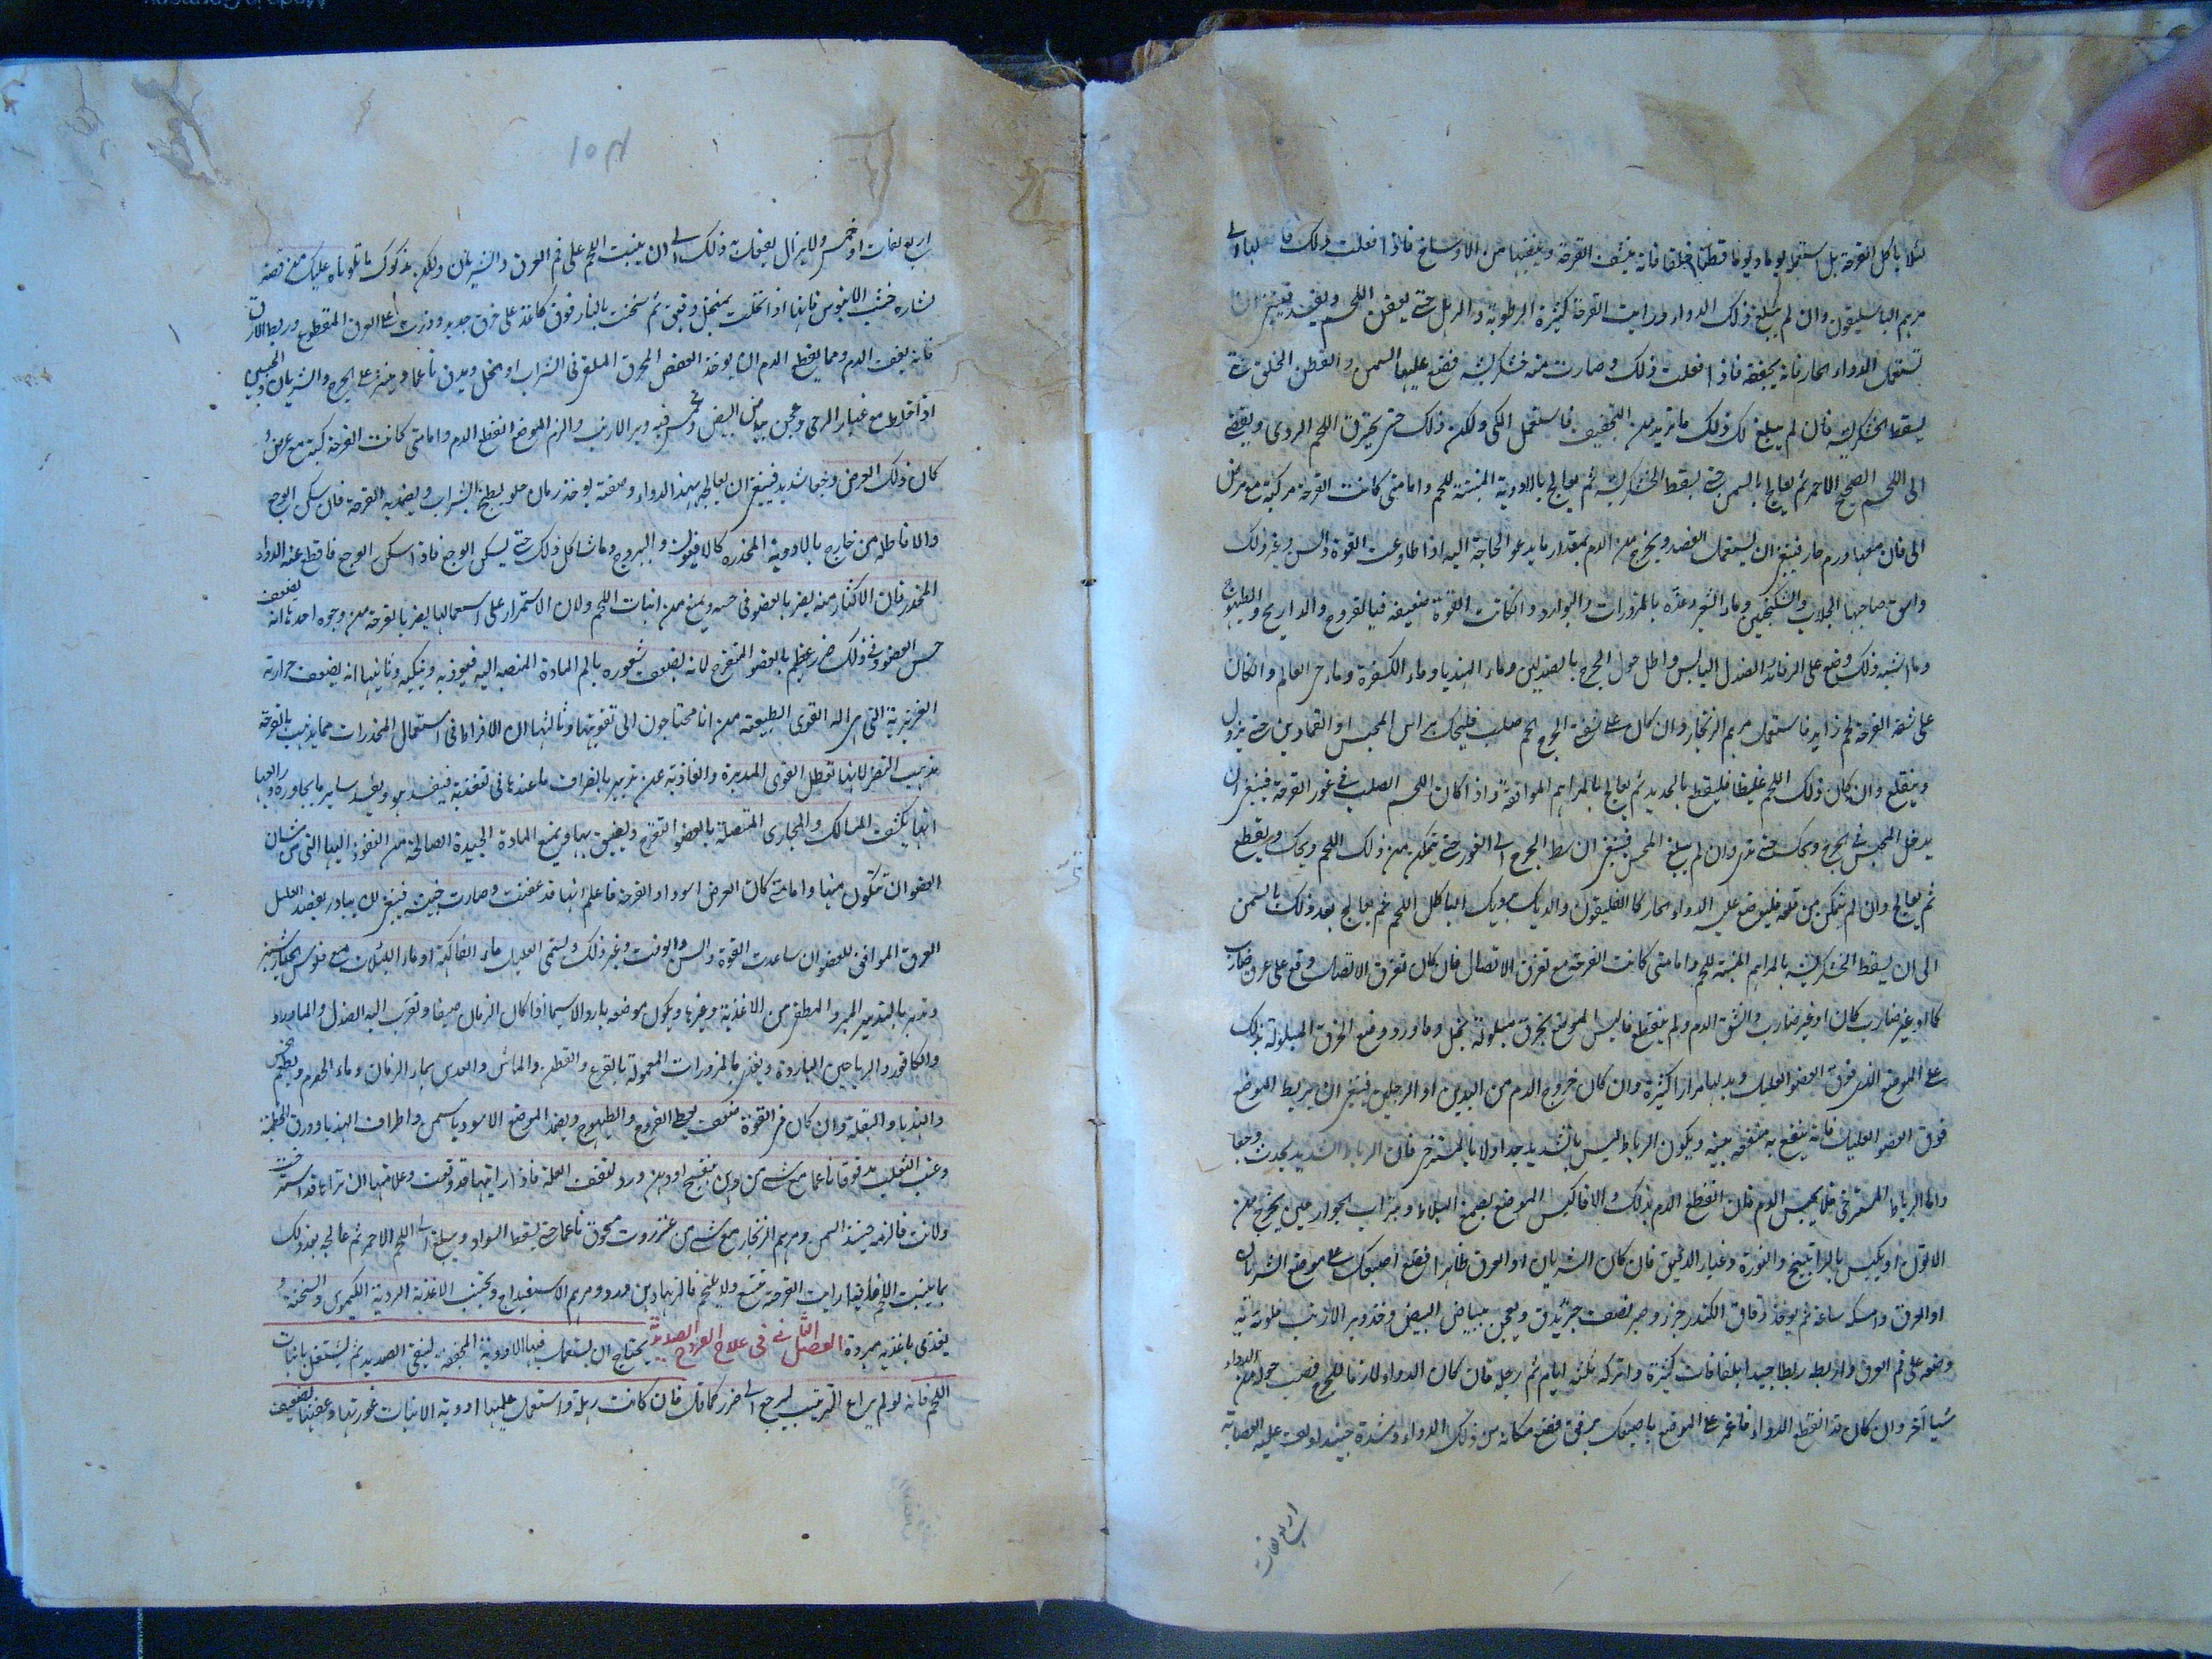 لئلا ياكل القرحة بل استعمله يوما ويوما قطنا خلقا فانه ينشف القرحة وينقيها من الاوساخ فاذا فعلت ذلك
مرهم الباسليقون وان لم يبلغ ذلك الدواء ورايت القرحة كثيرة الرطوبة والرهل حتى يعفن اللحم ويفسد فينبغي ان
تستعمل الدواء الحار فانه يجففه فاذا فعلت ذلك وصارت منه خشكريشة فضع عليها السمن والقطن الخلق حتى
يسقط الخشكريشة فان لم يبلغ لك ذلك ما تريد من التجفيف فاستعمل الكي وليكن ذلك حتى يحترق اللحم الردي ويفضي
الى اللحم الصحيح الاحمر ثم يعالج بالسمن حتى يسقط الخشكريشة ثم يعالج بالادوية المنبتة للحم واما متى كانت القرحة مركبة مع مرض
الى فان معها ورم حار فينبغي ان يستعمل الفصد ويخرج من الدم بمقدار ما يدعو الحاجة اليه اذا طاوعت القوة والسن وغير ذلك
واسق صاحبها الجلاب والسكنجبين وماء الشعير وغذه بالمزورات والبوارد وان كانت القوة ضعيفة فبالفروج والدراريج والطيهوج
وما اشبه ذلك وضع على الرفائد الصندل اليابس واطل حول الجرح بالصندلين وماء الهندبا وماء الكسفرة وماء حي العالم وان كان
على شفة القرحة لحم زايد فاستعمل مرهم الزنجار وان كان على شفة الجرح لحم صلب فليحك براس المجس او القمادين حتى يزول
وينقلع وان كان ذلك اللحم غليظا فليقطع بالحديد ثم يعالج بالمراهم الموافقة واذا كان اللحم الصلب في غور القرحة فينبغي ان
يدخل المجس في الجرح ويحك حتى تدمى وان لم يبلغ المجس فينبغي ان يبط الجرح الى الغور حتى تتمكن من ذلك اللحم ويحك ويقطع
ثم يعالج وان لم يتمكن من قلعه فليوضع عليه الدواء الحار كالفلفليقون والديك برديك لياكل اللحم ثم يعالج بعد ذلك بالسمن
الى ان يسقط الخشكريشة بالمراهم المنبتة للحم واما متى كانت القرحة مع تفرق الاتصال فان كان تفرق الاتصال وقع على عرق ضارب
كان او غير ضارب وانشق الدم ولم ينقطع فاليس الموضع بخرق مبلولة بخل وماورد وضع الخرق المبلولة بذلك
على الموضع الذي فوق العضو العليل وبدلها مرارا كثيرة وان كان خروج الدم من اليدين او الرجلين فينبغي ان يربط الموضع
فوق العضو العليل فانه ينتفع به منفعة بينة ويكون الرباط ليس بالشديد جدا ولا بالمسترخي فان الرباط الشديد يحدث وجعا
واما الرباط المسترخي فلا يحبس الدم فان انقطع الدم بذلك والا فاكبس الموضع بصمغ البلاط وبتراب الجوار حين يخرج من
الاتون او يكبس بالراتينج والنورة وغبار الدقيق فان كان الشريان او العرق ظاهرا فضع اصبعك على موضع الشريان
او العرق وامسكه ساعة ثم يوخذ دقاق الكندر جزو وصبر نصف جزو يدق ويعجن ببياض البيض وخذ وبر الارنب فلوثه فيه
وضعه على فم العرق واربطه ربطا جيدا بلفافات كثيرة واتركه ثلثة ايام ثم تحله فان كان الدواء لازقا للجرح فصب حوله من الدواء
شيا آخر وان كان قد انقطع الدواء فاغمز على الموضع باصبعك برفق وضع مكانه من ذلك الدواء وشده جيدا ولف عليه العصابة
اربع لفات
اربع لفات او خمس ولا يزال يفعل به ذلك الى ان ينبت اللحم على فم العرق والشريان وليكن بذكرك ما تلوناه عليك من قصة
نشارة خشب الابنوس فانها اذا نخلت بمنخل وفيق ثم سخنت بالنار فوق كاغذ على خرق جديد وذرت على العرق المقطوع وربط الازق
فانه يقف الدم ومما يقطع الدم ان يوخذ العفص المحرق الملقى في الشراب او الخل ويدق ناعما ويذر على الجرح والشريان والجبسين
اذا خلط مع غبار الرحى وعجن ببياض البيض وغمس فيه وبر الارنب والزم الموضع انقطع الدم واما متى كانت القرحة مركبة مع عرض و
كان ذلك العرض وجعا شديدا فينبغي ان يعالجه بهذا الدواء وصفته يوخذ رمان حلو يطبخ بالشراب ويضمد به القرحة فان سكن الوجع
والا فاطله من خارج بالادوية المخدرة كالافيون والبيروح وما شاكل ذلك حتى يسكن الوجع فاذا سكن الوجع فاقطع عنه الدواء
المخدر فان الاكثار منه يضر بالعضو في حسه ويمنع من انبات اللحم ولان الاستمرار على استعمالها يضر بالقرحة من وجوه احدها انه يضعف
حس العضو وفي ذلك ضرر عظيم بالعضو المتقرح لانه يضعف شعوره بالم المادة المنصبة اليه فيؤذيه وينكيه وثانيها انه يضعف حرارته
الغريزية التي هي الة القوى الطبيعية من انا محتاجون الى تقويتها وثالثها ان الافراط في استعمال المخدرات مما يذهب بالقرحة
مذهب التضر لانها تعطل القوى المدبرة والغاذية عن تدبير بالضراف ما عندها في تغذيته فيفسد هو ويفسد ساير ما يجاوره ورابعها
انها يكثف المسالك والمجاري المتصلة بالعضو المتقرح ويضيق بها ويمنع المادة الجيدة الصالحة من النفوذ اليها التي من شان
العضو ان تتكون منها واما متى كان العرض اسوداد القرحة فاعلم انها قد عفنت وصارت خبيثة فينبغي ان يبادر بفصد العليل
العرق الموافق للعضو ان ساعدت القوة والسن والوقت وغير ذلك وتسقي العليل ماء الفاكهة او ماء اللبلاب مع فلوس الخيارشنبر
وتدبر بالتدبير المبرد المطفى من الاغذية وغيرها ويكون موضعه باردا لاسيما اذا كان الزمان صيفا وتقرب اليه الصندل والماورد
والكافور والرياحين الباردة ويغذى بالمزورات المعمولة بالقرع والقطف والماش والعدس بماء الرمان وماء الحصرم ويطعم الخس
والهندبا والبقلة وان كان في القوة ضعف يعطى الفروج والطيهوج ويضمد الموضع الاسود بالسمن واطراف الهندبا وورق الخطمية
وعنب الثعلب مدقوقا ناعما مع شي من دهن بنفسج او دهن ورد ليقف العلة فاذا رايتها قد وقفت وعلامتها ان تراها قد استرخت
ولانت فالزمه حينئذ السمن ومرهم الزنجار مع شي من عنزروت مسحوق ناعما حتى يسقط السواد ويبلغ الى اللحم الاحمر ثم عالجه بعد ذلك
بما ينبت اللحم فاذا رايت القرحة تتسع ولا يلتحم فالزمها دهن ورد ومرهم الاسفيداج وتجتنب الاغذية الردية الكيموس والسخنة و
يغذى باغذية مبردة الفصل الثاني في علاج القروح الصديدية يحتاج ان يستعمل فيها الادوية المجففة لينقى الصديد ثم يشتغل بانبات
اللحم فانه لو لم يراع الترتيب يرجع الى ضرر كما قال فان كانت رهلة واستعمل عليها ادوية الانبات غورتها وعفنتها